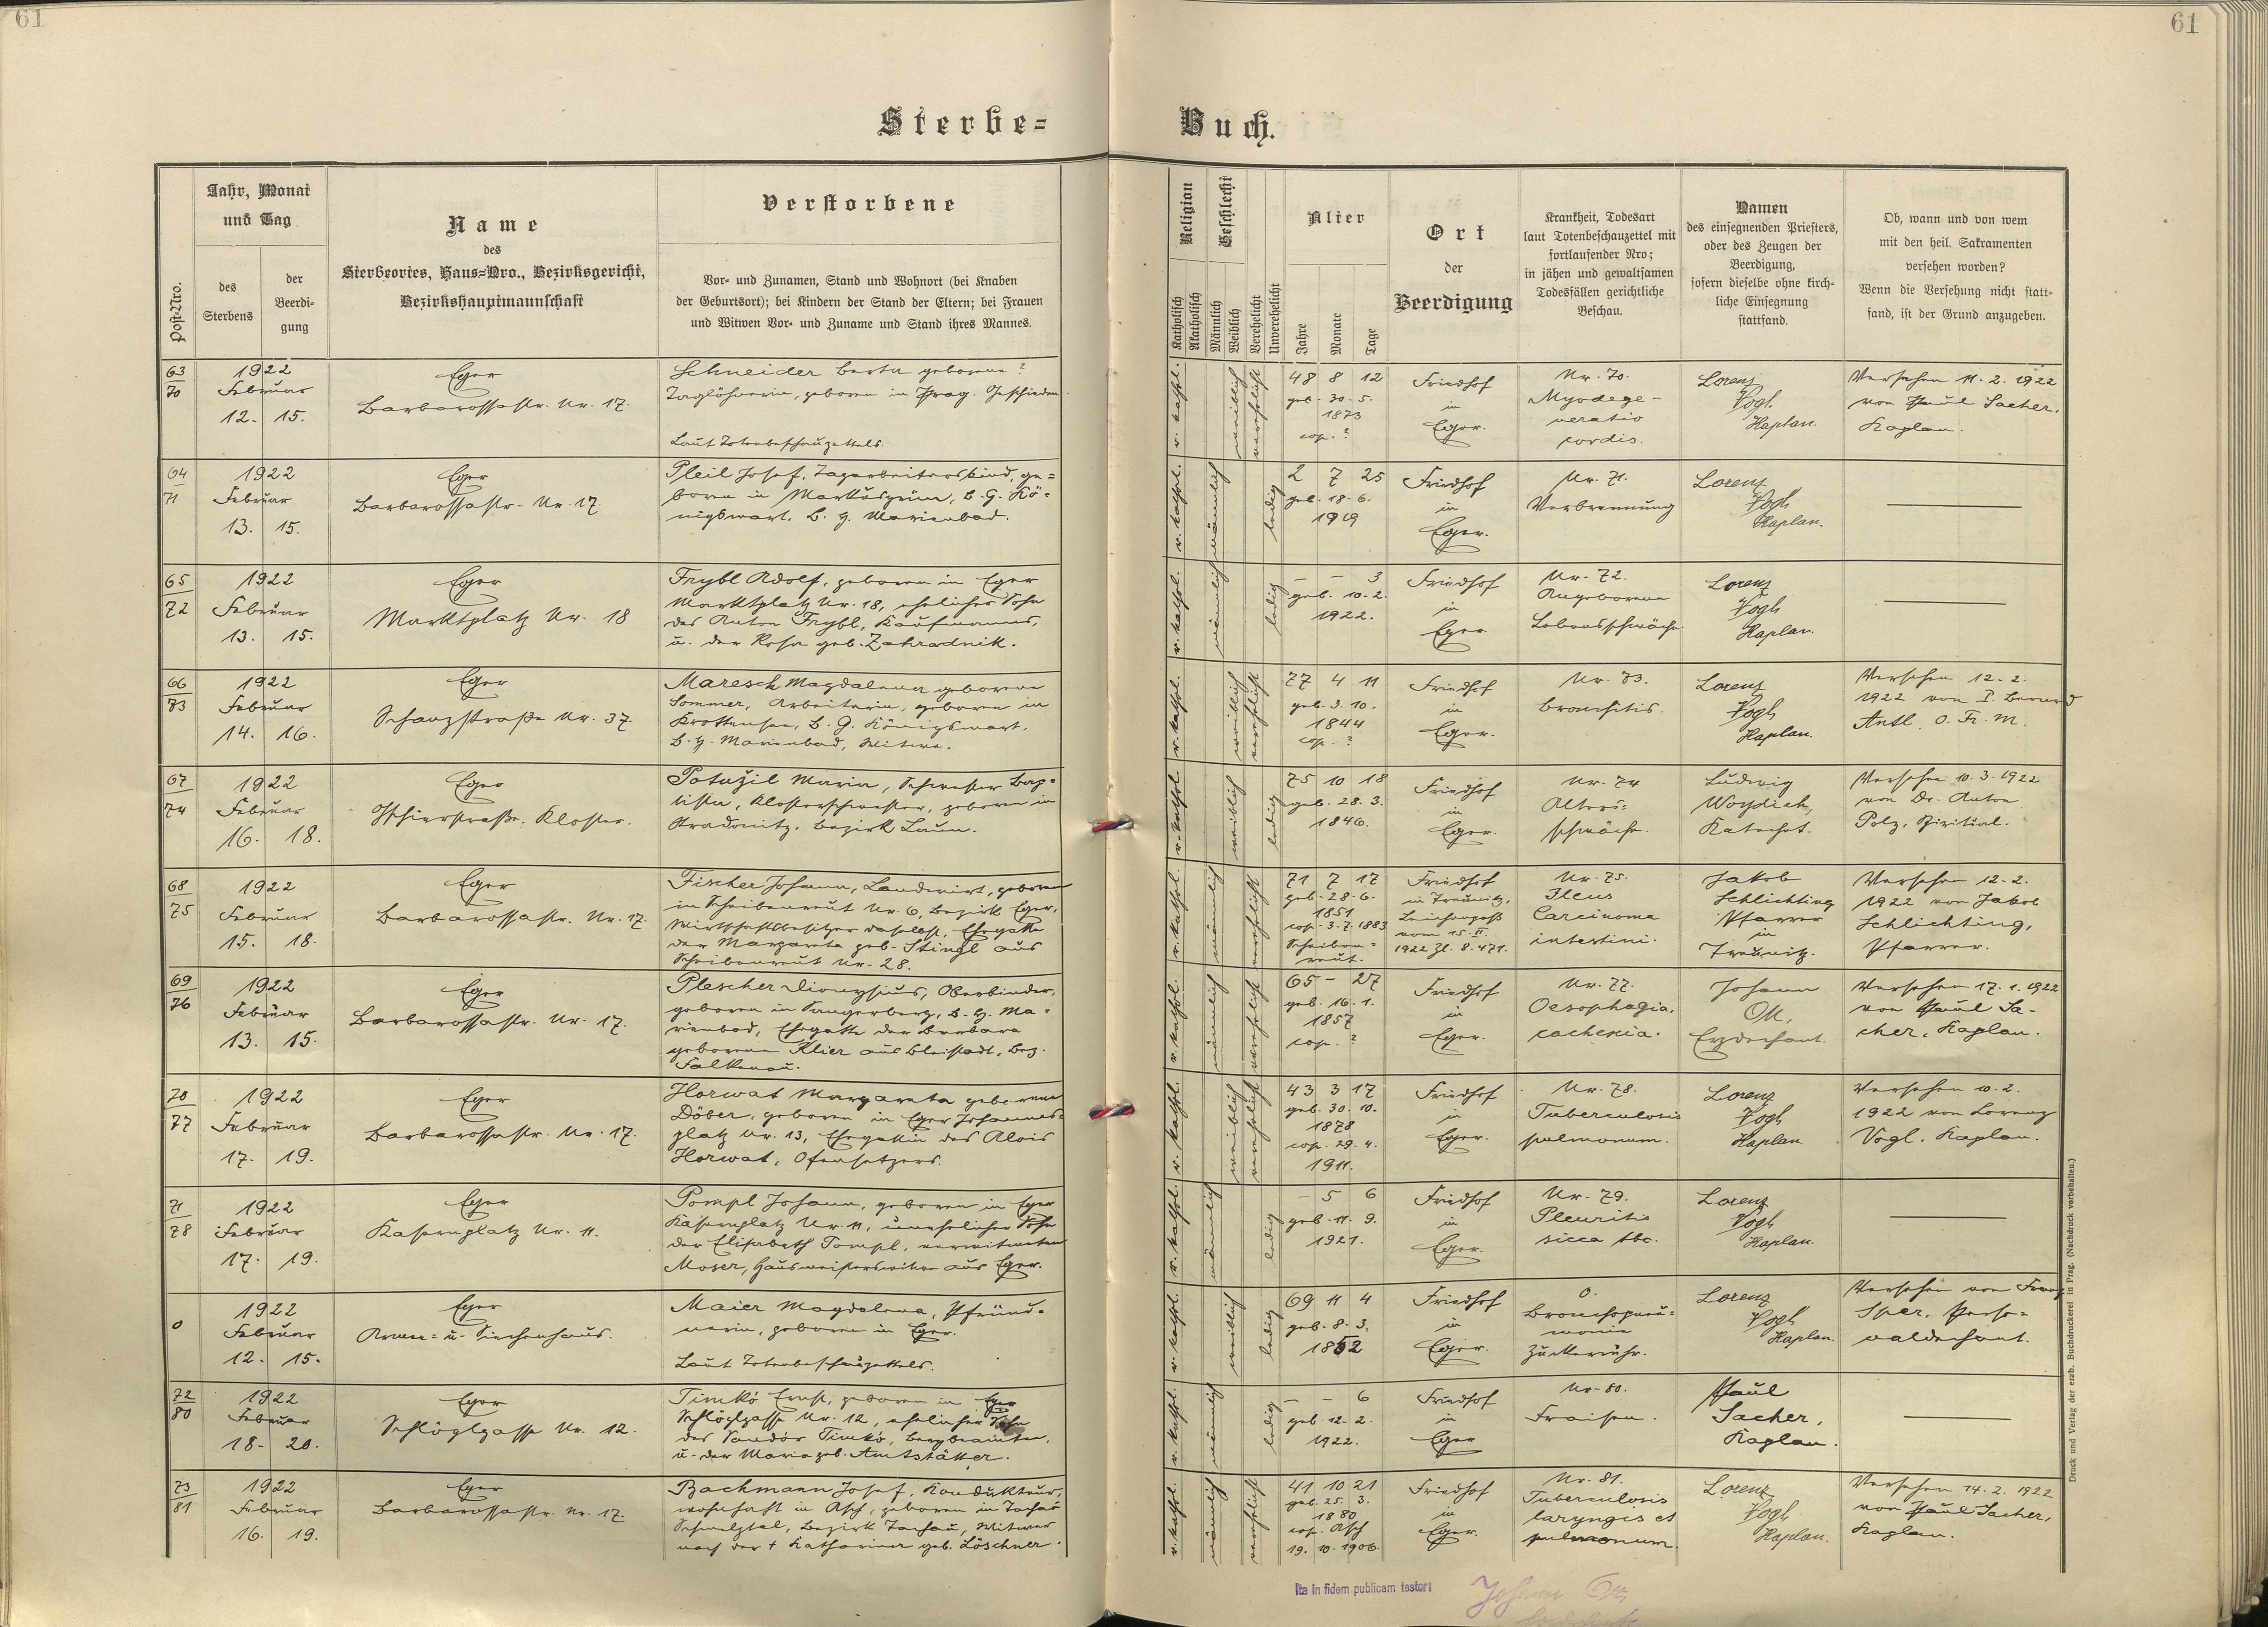 61
61
Sterbe=
Buch.
Post-Nro.
Jahr, Monat
und Tag
des
Sterbens
der
Beerdi-
gung
Name
des
Sterbeortes, Haus=Nro., Bezirksgericht,
Bezirkshauptmannschaft
Verstorbene
Vor- und Zunamen, Stand und Wohnort (bei Knaben
der Geburtsort); bei Kindern der Stand der Eltern; bei Frauen
und Witwen Vor- und Zuname und Stand ihres Mannes.
Religion
Katholisch
Akatholisch
Geschlecht
Männlich
Weiblich
Verehelicht
Unverehelicht
Alter
Jahre
Monate
Tage
Ort
der
Beerdigung
Krankheit, Todesart
laut Totenbeschauzettel mit
fortlaufender Nro;
in jähen und gewaltsamen
Todesfällen gerichtliche
Beschau.
Namen
des einsegnenden Priesters,
oder des Zeugen der
Beerdigung,
sofern dieselbe ohne kirch-
liche Einsegnung
stattfand.
Ob, wann und von wem
mit den heil. Sakramenten
versehen worden?
Wenn die Versehung nicht statt-
fand, ist der Grund anzugeben.
63
70
1922
Februar
12. 15.
Eger
Barbarossastr. Nr. 17.
Schneider Berta geborene ?
Taglöhnerin, geboren in Prag. Geschieden.
Laut Totenbeschauzettels.
r. kathol.
weiblich
verehelicht
48 8 12
geb. 30. 5.
1873
cop. ?
Friedhof
in
Eger.
Nr. 70.
Myodege-
neratio
cordis.
Lorenz
Vogl.
Kaplan.
Versehen 11. 2. 1922
von Paul Sacher,
Kaplan.
64
71
1922
Februar
13. 15.
Eger
Barbarossastr. Nr. 17.
Pleil Josef, Tagarbeiterskind, ge=
boren in Markusgrün, B. G. Kö=
nigswart, B. H. Marienbad.
r. kathol.
männlich
ledig
2 7 25
geb. 18. 6.
1919
Friedhof
in
Eger.
Nr. 71.
Verbrennung
Lorenz
Vogl
Kaplan.
65
72
1922
Februar
13. 15.
Eger
Marktplatz Nr. 18
Frybl Adolf, geboren in Eger
Marktplatz Nr. 18, ehelicher Sohn
des Anton Frybl, Kaufmannes,
u. der Rosa geb. Zahradnik.
r. kathol.
männlich
ledig
- - 3
geb. 10. 2.
1922.
Friedhof
in
Eger.
Nr. 72.
Angeborene
Lebensschwäche.
Lorenz
Vogl
Kaplan.
66
73
1922
Februar
14. 16.
Eger
Schanzstraße Nr. 37.
Maresch Magdalena geborene
Sommer, Arbeiterin, geboren in
Krottensee, B. G. Königswart,
B. H. Marienbad, Witwe.
r. kathol.
weiblich
verehelicht
77 4 11
geb. 3. 10.
1844
cop. ?
Friedhof
in
Eger.
Nr. 73.
Bronchitis.
Lorenz
Vogl
Kaplan.
Versehen 12. 2.
1922 von P. Bernard
Antl. O. Fr. M.
67
74
1922
Februar
16. 18.
Eger
Kloster.
Potužil Maria, Schwester Bap=
tista, Klosterschwester, geboren in
Stradonitz, Bezirk Laun.
r. kathol.
weiblich
ledig
75 10 18
geb. 28. 3.
1846.
Friedhof
in
Eger.
Nr. 74
Alters=
schwäche.
Ludwig
Woydich,
Katechet.
Versehen 10. 3. 1922
von Dr. Anton
Polz, Spiritual.
68
75
1922
Februar
15. 18.
Eger
Barbarossastr. Nr. 17.
Fischer Johann, Landwirt, geboren
in Scheibenreut Nr. 6, Bezirk Eger,
Wirtschaftsbesitzer daselbst, Ehegatte
der Margareta geb. Stingl aus
Scheibenreut Nr. 28.
r. kathol.
männlich
verehelicht
71 7 17
geb. 28. 6.
1851
cop. 3. 7. 1883
Scheiben=
reut.
Friedhof
in Treunitz.
Leichenpaß
vom 15. II.
1922 Zl. 8.471.
Nr. 75.
Ileus
Carcinoma
intestini.
Jakob
Schlichting
Pfarrer
in
Treunitz.
Versehen 12. 2.
1922 von Jakob
Schlichting,
Pfarrer.
69
76
1922
Februar
13. 15.
Eger
Barbarossastr. Nr. 17.
Plescher Dionysius, Oberbinder,
geboren in Sangerberg, B. H. Ma=
rienbad, Ehegatte der Barbara
geborenen Klier aus Bleistadt, Bez.
Falkenau.
r. kathol.
männlich
verehelicht
65 - 27
geb. 16. 1.
1857
cop. ?
Friedhof
in
Eger.
Nr. 77.
Oesophagia.
cachexia.
Johann
Ott,
Erzdechant.
Versehen 17. 1. 1922
von Paul Sa-
cher, Kaplan.
70
77
1922
Februar
17. 19.
Eger
Barbarossastr. Nr. 17.
Horwat Margareta geborene
Döber, geboren in Eger Johannes=
platz Nr. 13, Ehegattin des Alois
Horwat, Ofensetzers.
r. kathol.
weiblich
verehelicht
43 3 17
geb. 30. 10.
1878
cop. 29. 4.
1911.
Friedhof
in
Eger.
Nr. 78.
Tuberculosis
pulmonum.
Lorenz
Vogl
Kaplan
Versehen 10. 2.
1922 von Lorenz
Vogl, Kaplan.
71
78
1922
Februar
17. 19.
Eger
Kasernplatz Nr. 11.
Pompl Johann, geboren in Eger
Kasernplatz Nr. 11, unehelicher Sohn
der Elisabeth Pompl, verwitweten
Moser, Hausmeisterswitwe aus Eger.
r. kathol.
männlich
ledig
- 5 6
geb. 11. 9.
1921.
Friedhof
in
Eger.
Nr. 79.
Pleuritis
sicca tbc.
Lorenz
Vogl
Kaplan.
0
1922
Februar
12. 15.
Eger
Armen= u. Siechenhaus.
Maier Magdalena, Pfründ=
nerin, geboren in Eger.
Laut Totenbeschauzettels.
r. kathol.
weiblich
ledig
69 11 4
geb. 8. 3.
1852
Friedhof
in
Eger.
0.
Bronchopneu=
monie
Zuckerruhr.
Lorenz
Vogl
Kaplan.
Versehen von Franz
Sper, Perso=
naldechant.
72
80
1922
Februar
18. 20.
Eger
Schlöglgasse Nr. 12.
Timkó Ernst, geboren in Eger
Schlöglgasse Nr. 12, ehelicher Sohn
des Sandór Timkó, Bergbeamten,
u. der Maria geb. Amtstätter.
r. kathol.
männlich
ledig
- - 6
geb. 12. 2.
1922.
Friedhof
in
Eger
Nr. 80.
Fraisen.
Paul
Sacher,
Kaplan.
73
81
1922
Februar
16. 19.
Eger
Barbarossastr. Nr. 17.
Bachmann Josef, Kondukteur,
wohnhaft in Asch, geboren in Tachau
Schmelztal, Bezirk Tachau, Witwer
nach der + Katharina geb. Löschner.
r. kathol.
männlich
verehelicht
41 10 21
geb. 25. 3.
1880
cop. Asch
19. 10. 1906.
Friedhof
in
Eger.
Nr. 81.
Tuberculosis
laryngis et
pulmonum.
Lorenz
Vogl
Kaplan.
Versehen 14. 2. 1922
von Paul Sacher,
Kaplan.
Ita in fidem publicam testor:
Johann Ott
Druck und Verlag der erzb. Buchdruckerei in Prag. (Nachdruck verbehalten.)